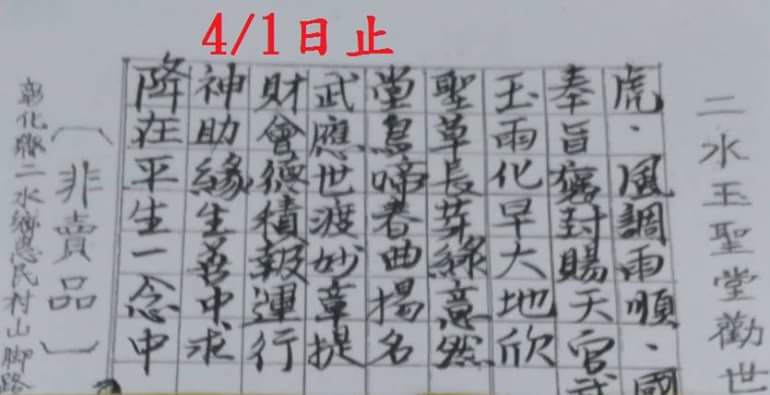 4/1日止
二水玉聖堂勸世
虎．風調雨順．國
奉旨封賜天官武
玉雨化早大地欣
聖草長芽綠意然
堂鳥啼春曲揚名
武應世渡妙章提
財會德積報運行
神助緣生善中求
降在平生一念中
〔非賣品〕
彰化縣二水鄉惠民村山脚路